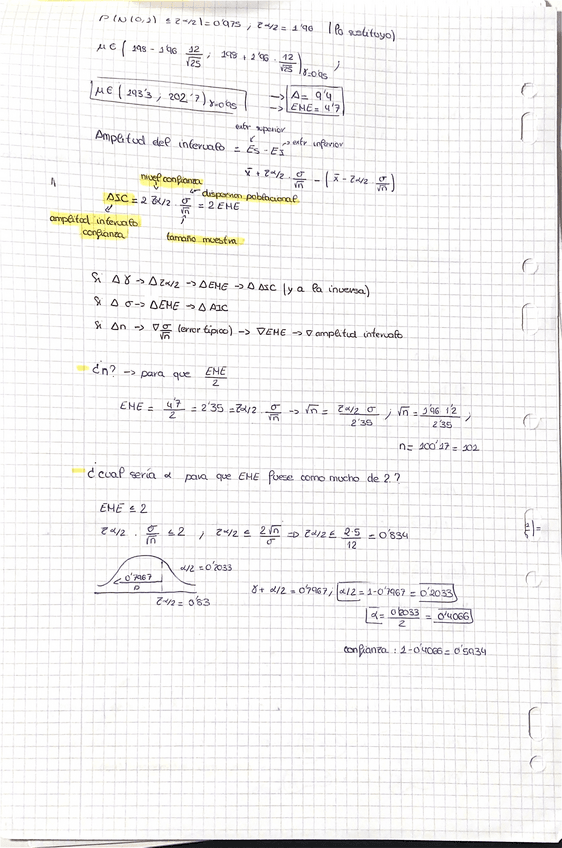 P(N(0,1) ≤ zα/2) = 0'975, zα/2 = 1'96 (lo sustituyo)
μ ∈ (198 - 1'96 12/√25, 198 + 1'96 · 12/√25) γ=0'95 ;
μ ∈ (193'3, 202'7) γ=0'95 → Δ = 9'4
→ EME = 4'7
extr superior
Amplitud del intervalo = Es - Ei → extr inferior
x̄ + zα/2 · σ/√n - (x̄ - zα/2 · σ/√n)
nivel confianza
dispersion poblacional
AIC = 2 zα/2 · σ/√n = 2 EME
amplitud intervalo
confianza
tamaño muestra
Si Δγ → Δzα/2 → ΔEME → ΔAIC (y a la inversa)
Si Δσ → ΔEME → ΔAIC
Si Δn → ∇ σ/√n (error típico) → ∇EME → ∇ amplitud intervalo
¿n? → para que EME/2
EME = 4'7/2 = 2'35 = zα/2 · σ/√n → √n = zα/2 σ/2'35 ; √n = 1'96 12/2'35 ;
n = 100'17 = 101
¿cual sería α para que EME fuese como mucho de 2?
EME ≤ 2
zα/2 · σ/√n ≤ 2 , zα/2 ≤ 2√n/σ ⇒ zα/2 ≤ 2·5/12 = 0'834
α/2 = 0'2033
0'7967
zα/2 = 0'83
γ + α/2 = 0'7967, α/2 = 1 - 0'7967 = 0'2033
α = 0'2033/2 = 0'4066
confianza : 1 - 0'4066 = 0'5934